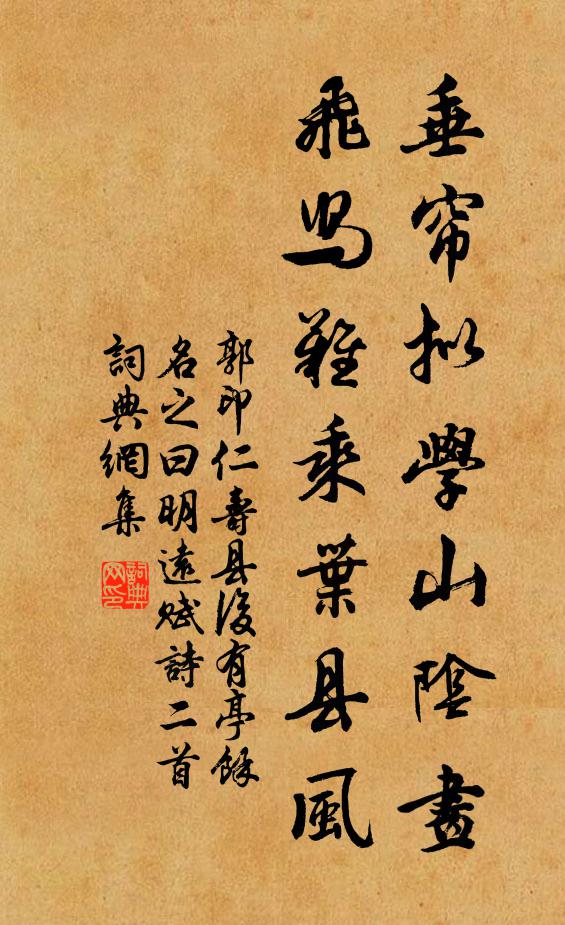 垂帘拟學山陰晝
飛舄難乘葉县風
郭印仁壽县後有亭餘
名之曰明遠賦詩二首
詞典網集
詞典网印